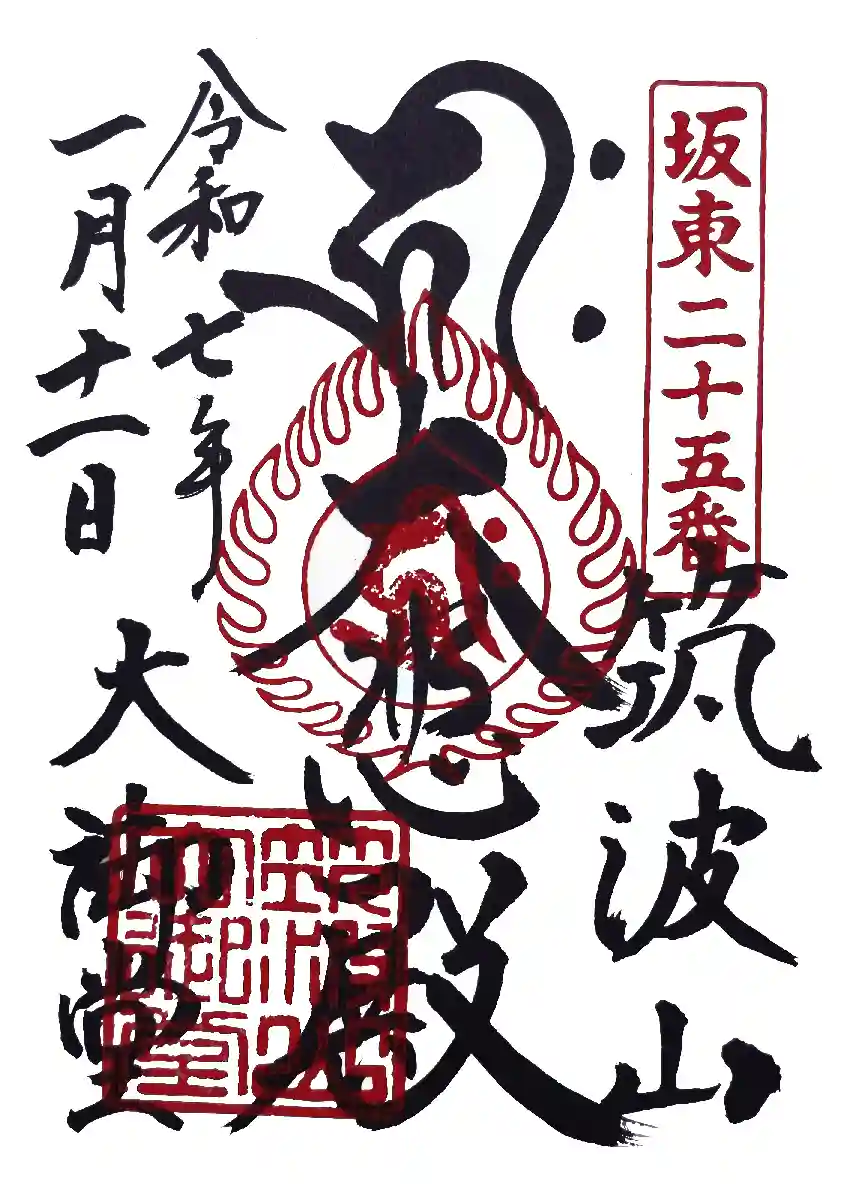 坂東二十五番
筑波山
大悲殿
令和七年
一月十一日
大御堂